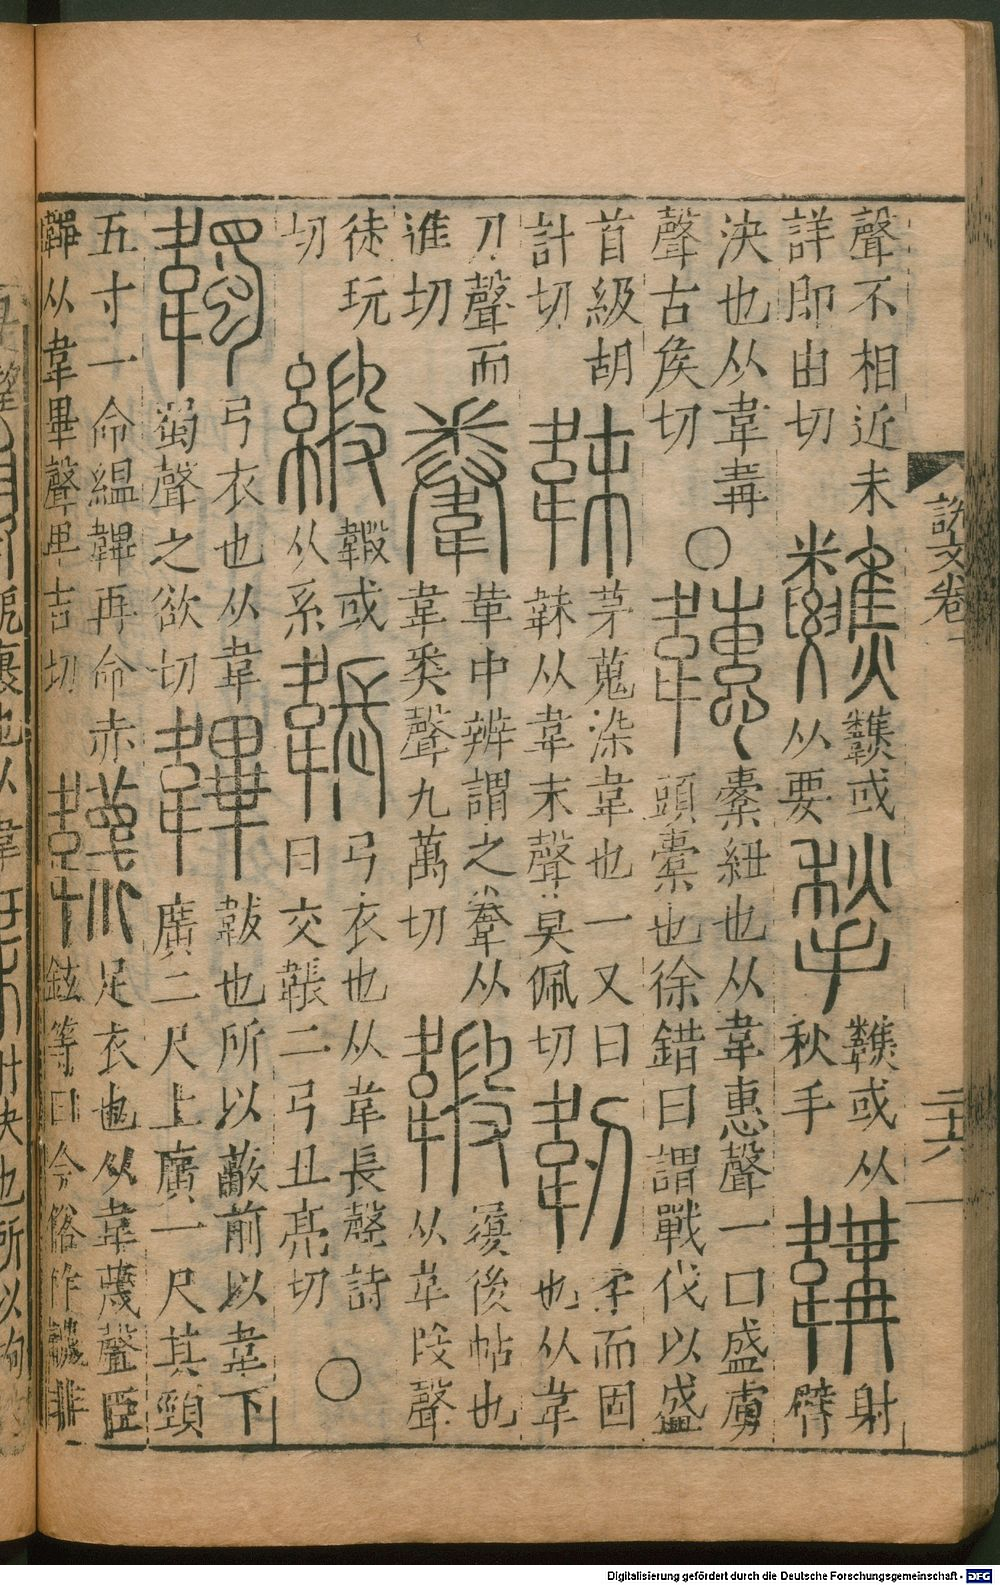 聲不相近未
詳即由切
或
从要
揫
或从
秋手
韝
射
臂
決也从韋冓
聲古矦切
○
韢
橐紐也从韋惠聲一曰盛虜
頭橐也徐鍇曰謂戰伐以盛
首級胡
計切
韎
茅蒐染韋也一又曰
韎从韋末聲莫佩切
韌
柔而固
也从韋
刃聲而
進切
韏
革中辨謂之韏从
韋𢍏聲九萬切
䪗
履後帖也
从韋段聲
徒玩
切
緞
䪗或
从糸
韔
弓衣也从韋長聲詩
曰交韔二弓丑亮切
○
韣
弓衣也从韋
蜀聲之欲切
韠
韍也所以蔽前以韋下
廣二尺上廣一尺其頸
五寸一命縕韠再命赤
韠从韋畢聲卑吉切
韤
足衣也从韋蔑聲臣
鉉等曰今俗作韈非
說文卷
二十六
Digitalisierung gefördert durch die Deutsche Forschungsgemeinschaft - DFG